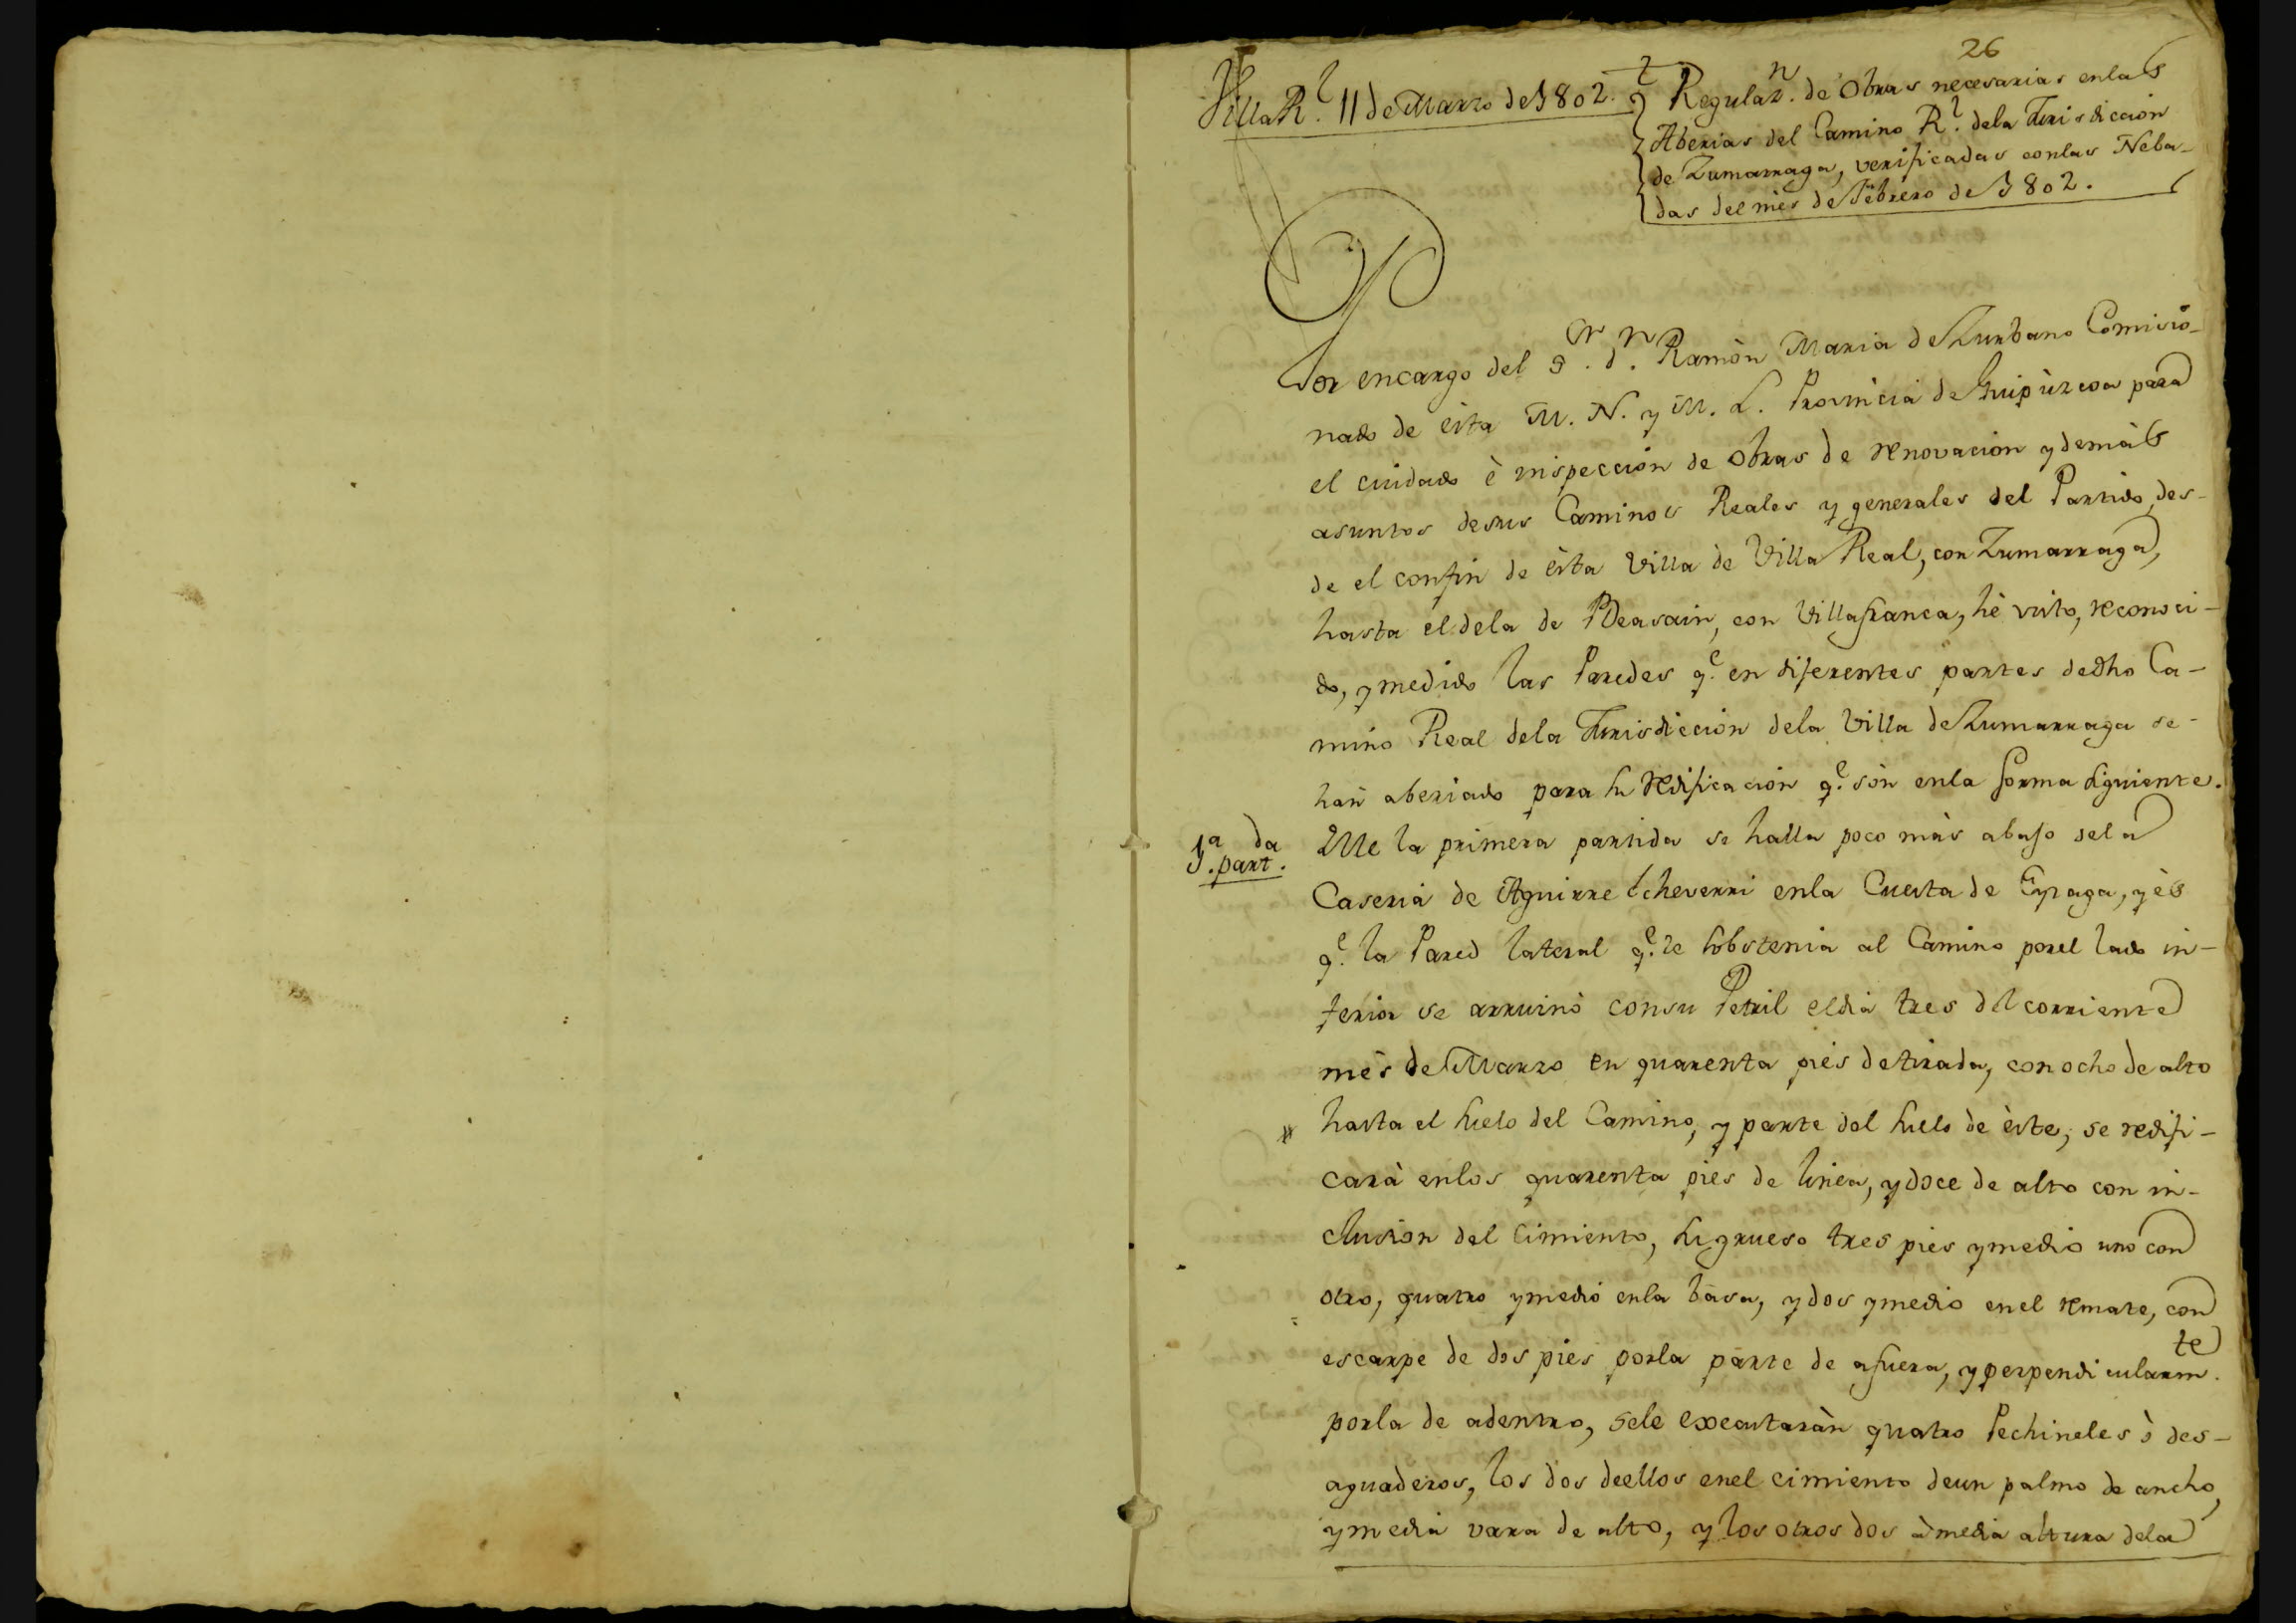 26
Villa R.l 11 de Marzo de 1802.
Regulaz.n de Obras necesarias enlas
Aberias del Camino R.l dela Jurisdiccion
de Zumarraga, verificadas conlas Neba-
das del mès de Febrero de 1802.
Por encargo del S.or d.n Ramòn Maria de Zurbano Comisio-
nado de èsta M. N. y M. L. Provincia de Guipùzcoa para
el cuidado è inspección de Obras de renovacion y demàs
asuntos desus Caminos Reales y generales del Partido, des-
de el confin de èsta Villa de Villa Real, con Zumarraga,
hasta el dela de Beasain, con Villafranca, hè visto, reconoci-
do, y medido las Paredes q.e en diferentes partes dedho Ca-
mino Real dela Jurisdiccion dela Villa de Zumarraga se
han aberiado para su redificacion q.e sòn enla forma siguiente.
1.a part.da
Que la primera partida se halla poco màs abajo dela
Caseria de Aguirre Echeverri enla Cuesta de Eyzaga, y ès
q.e la Pared lateral q.e le sobstenia al Camino porel lado in-
ferior se arruinò consu Petril eldia tres del corriente
mès de Marzo en quarenta pies de tirada, con ocho de alto
hasta el suelo del Camino, y parte del suelo de èste, se redifi-
carà enlos quarenta pies de linea, y doce de alto con in-
clusion del cimiento, su grueso tres pies y medio uno con
otro, quatro y medio enla basa, y dos y medio enel remate, con
escarpe de dos pies porla parte de afuera, y perpendicularm.te
porla de adentro, sele executaràn quatro Pechineles ò des-
aguaderos, los dos deellos enel cimiento deun palmo de ancho,
y media vara de alto, y los otros dos à media altura dela